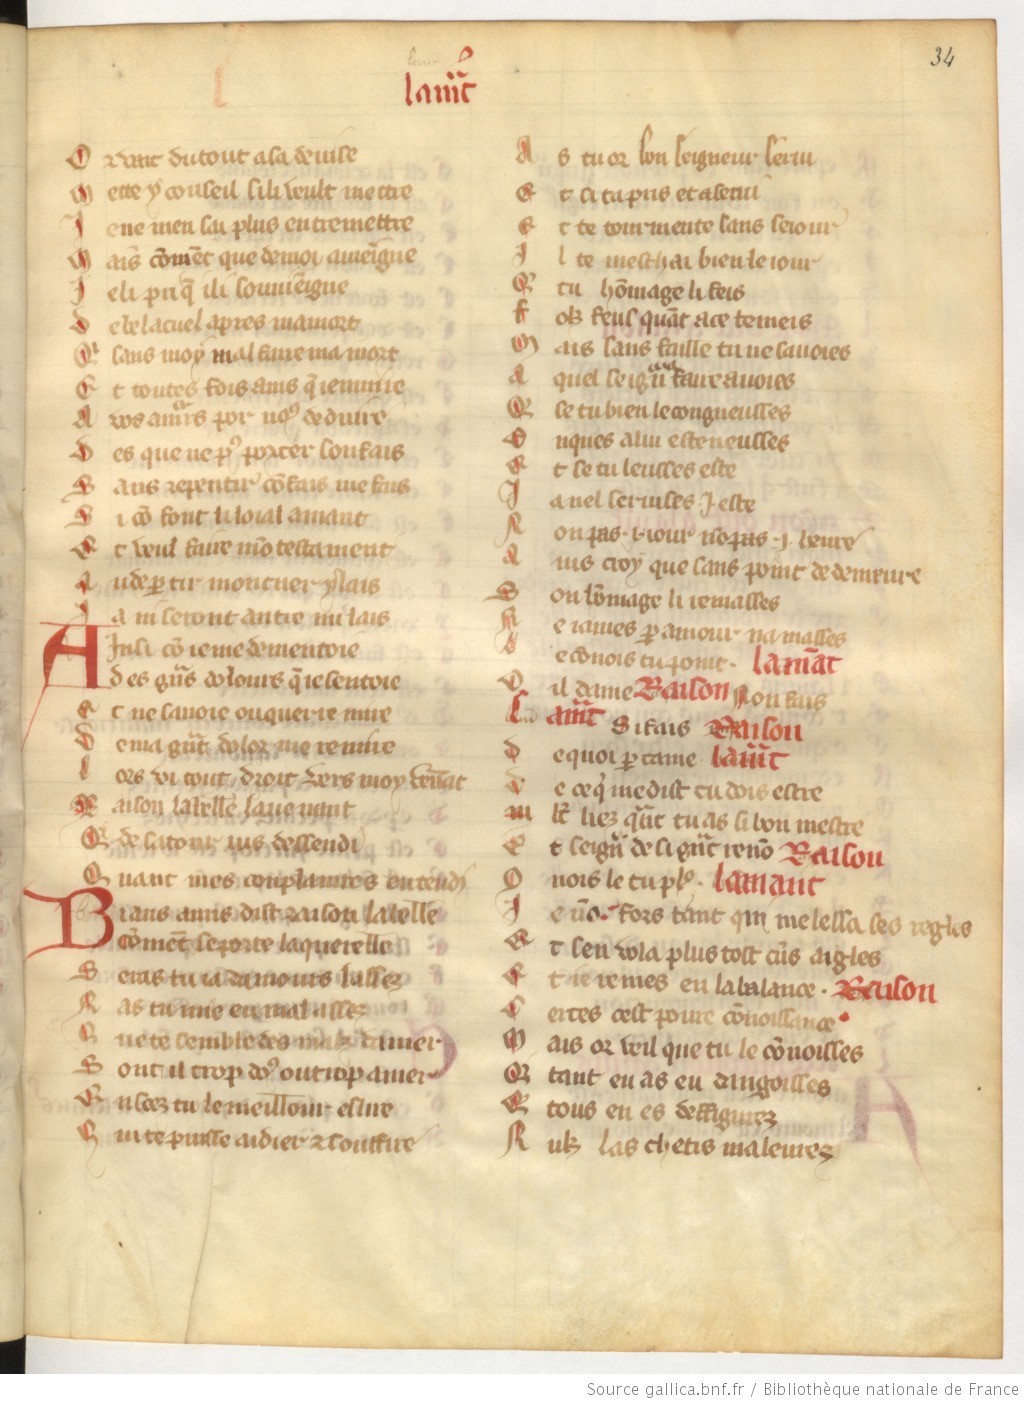 34
lamāt
O r vait du tout a sa devise
M ette y conseil sil i veult mettre
J e ne men sai plus entremettre
M ais cōmēt que de moi aviēgne
J e li pri q̄ il i souviēgne
D e bel acueil apres ma mort
Q sans moy mal faire ma mort
E t toutes fois amis q̄ ie muire
A vos amōrs por
D es que ne p̉ porter son fais
S ans repentir cōfais me fais
S i cō font li loial amant
E t veul faire mō testament
A u dep̄tir mon cuer y lais
J a ni seront autre mi lais
Ainsi cō ie me dementoie
D es g̃ns dolours q̄ ie sentoie
E t ne savoie ou querre mire
D e ma g̃nt dolor me
L ors vi tout droit vers moy venāt
R aison la belle lavenant
Q de sa tour ius dessendi
Q uant mes conplaintes entendi
Biaus amis dist raison la belle
Cōment se porte la querelle
S eras tu ia damours lassez
N as tu mie eu mal assez
Q ue te semble des maus damer
S ont il trop dous ou trop amer
E n scez tu le meillour eslire
Q ui te puisse aidier z souffire
A s tu or bon seigneur servi
E t si ta pris et aservi
E t te tourmente sans seiour
J l te meschai bien le iour
Q tu hōmage li feis
F ox feus quāt a ce te meis
M ais sans faille tu ne savoies
A quel seign̄r faire avoies
Q se tu bien le congneusses
O nques a lui este neusses
E t se tu leusses este
J a nel servises .i. este
N on pas .i. iour nō pas .i. heure
A ins croy que sans point de demeure
S on hōmage li
N e iames p̄ amour namasses
L e cōnois tu point . lamāt
O il dame Raison Non fais
lamāt Si fais Raison
D e quoi p̄ tame lamāt
D e ce q̄ me dist tu dois estre
M lt̄ liez q̄nt tu as si bon mestre
E t seign̄r de si g̃nt renō Raison
C nois le tu pl̉ . lamant
J e nō fors tant qui me lessa ses regles
E t sen vola plus tost cūs aigles
E t ie remes en la balance . Raison
C ertes cest povre cōnoissance
M ais or veil que tu le cōnoisses
Q tant en as eu dangoisses
E tous en es deffigurez
N ulz las chetis maleurez